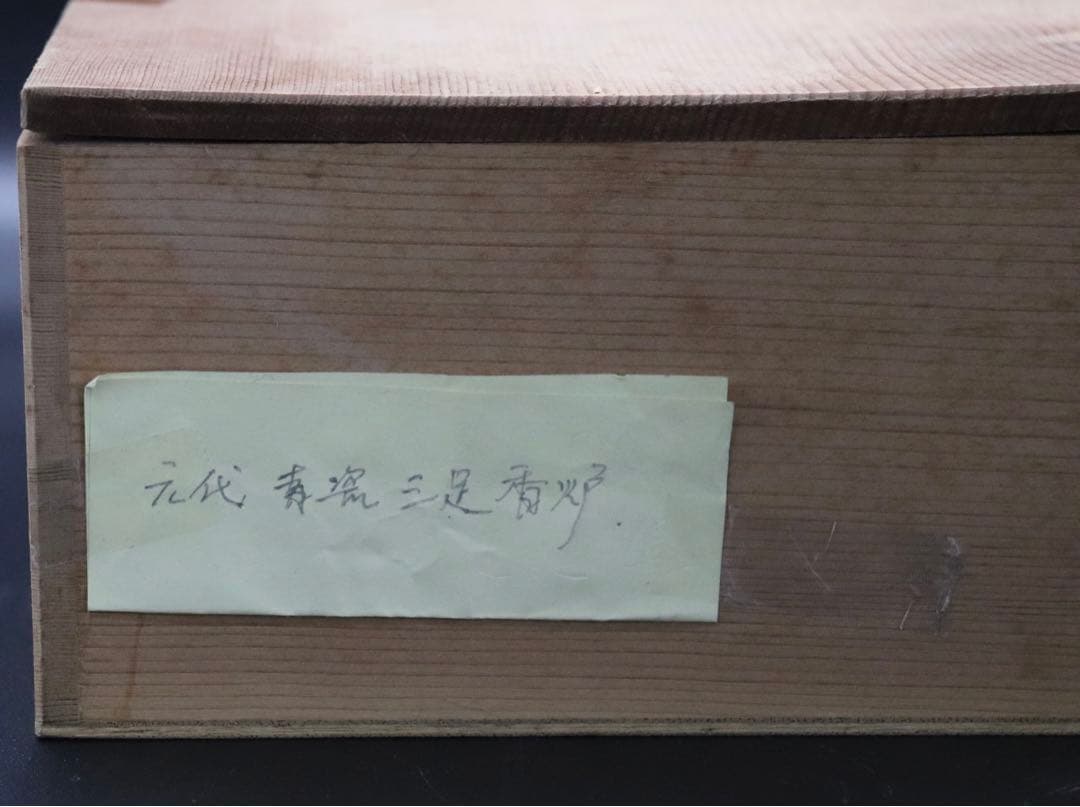 元代 青瓷 三足香炉.